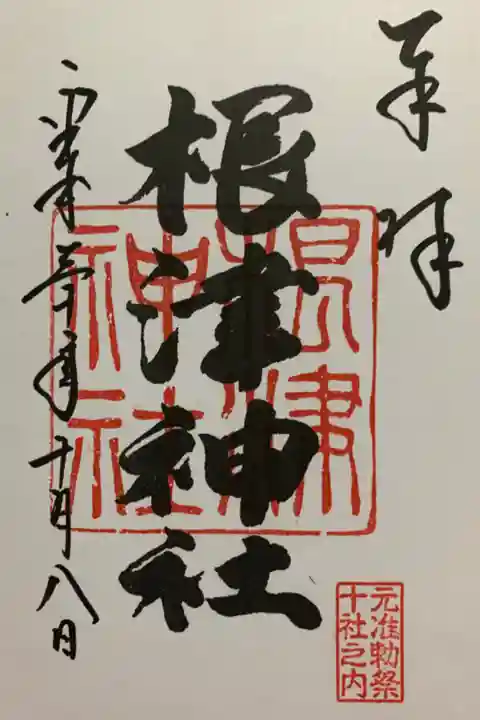 奉拝
根津神社
根津
神社
平成参十年十月八日
元准勅祭
十社之内